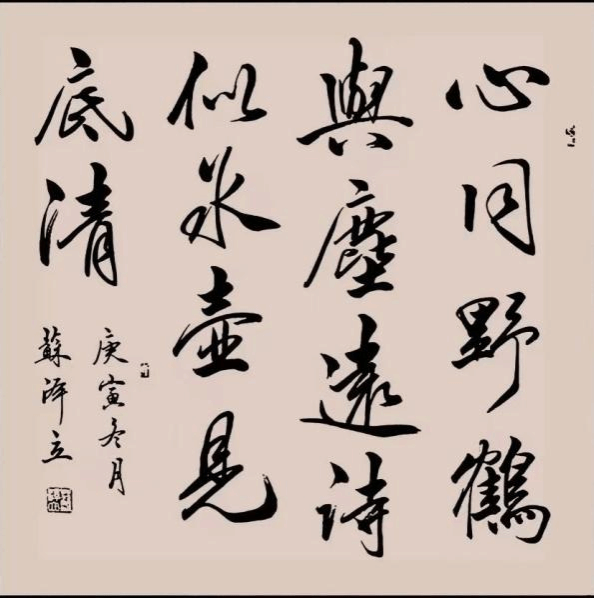 心同野鶴
與塵遠詩
似冰壺見
底清
庚寅冬月
蘇澤立